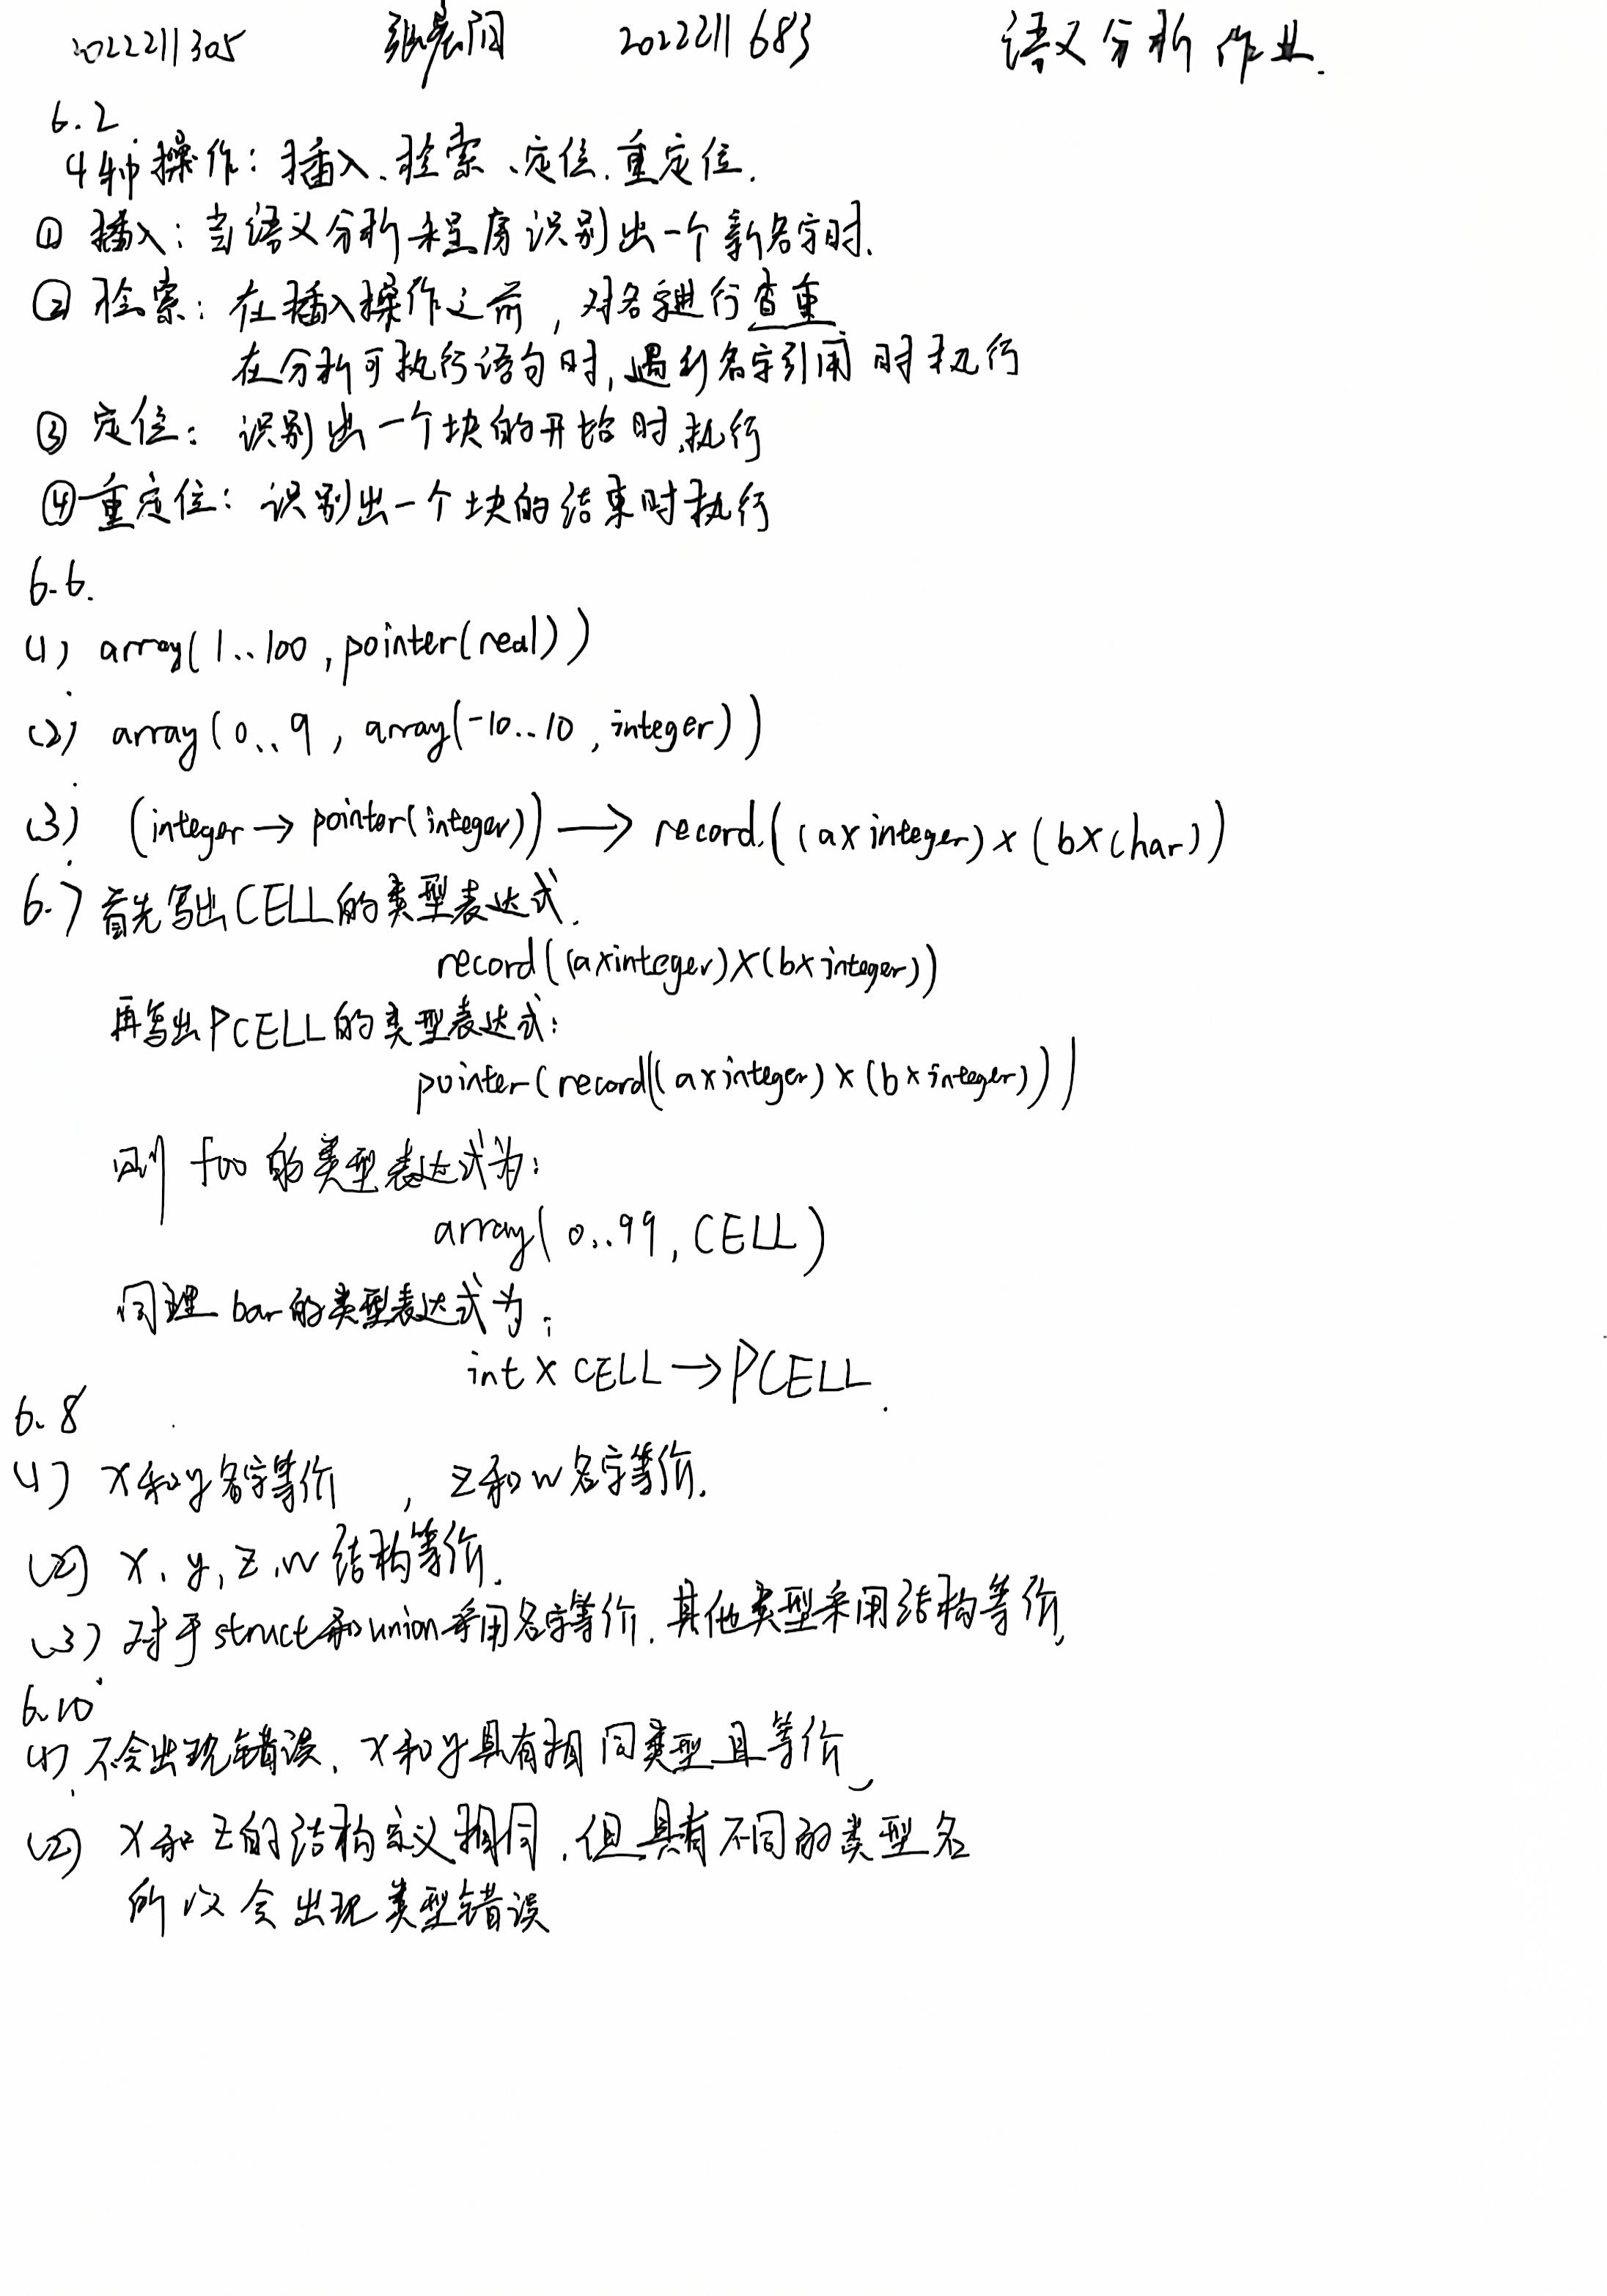 2022211305 张晨阳 2022211683 语义分析作业.
6.2
4种操作: 插入、检索、定位、重定位.
① 插入: 当语义分析程序识别出一个新名字时.
② 检索: 在插入操作之前, 对名字进行查重
在分析可执行语句时, 遇到名字引用时执行
③ 定位: 识别出一个块的开始时执行
④ 重定位: 识别出一个块的结束时执行
6.6.
(1) array(1..100, pointer(real))
(2) array(0..9, array(-10..10, integer))
(3) (integer → pointer(integer)) → record((a×integer)×(b×char))
6.7 首先写出CELL的类型表达式.
record((a×integer)×(b×integer))
再写出PCELL的类型表达式:
pointer(record((a×integer)×(b×integer)))
则 foo 的类型表达式为:
array(0..99, CELL)
同理 bar的类型表达式为:
int × CELL → PCELL.
6.8
(1) x和y名字等价, z和w名字等价.
(2) x、y, z、w 结构等价.
(3) 对于struct和union采用名字等价. 其他类型采用结构等价,
6.10
(1) 不会出现错误、x和y具有相同类型且等价
(2) x和z的结构定义相同. 但具有不同的类型名
所以会出现类型错误